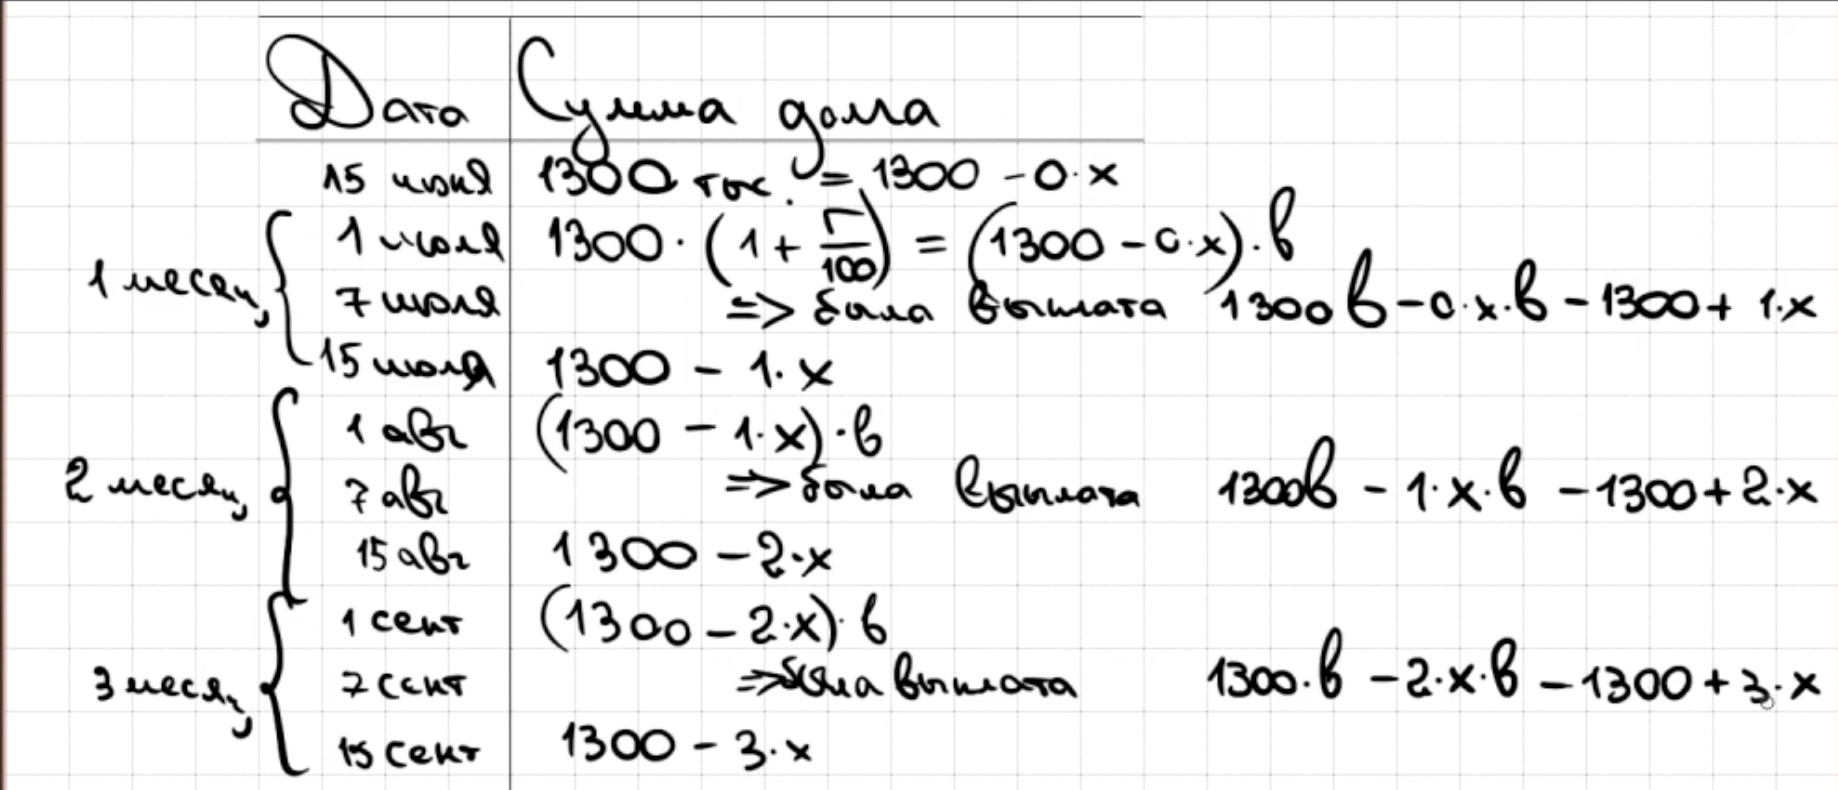 Дата Сумма долга
15 июня 1300 тыс. = 1300 - 0·x
1 июля 1300·(1 + r/100) = (1300 - 0·x)·b
1 месяц 7 июля => была выплата 1300b - 0·x·b - 1300 + 1·x
15 июля 1300 - 1·x
1 авг (1300 - 1·x)·b
2 месяц 7 авг => была выплата 1300b - 1·x·b - 1300 + 2·x
15 авг 1300 - 2·x
1 сент (1300 - 2·x)·b
3 месяц 7 сент => была выплата 1300·b - 2·x·b - 1300 + 3·x
15 сент 1300 - 3·x